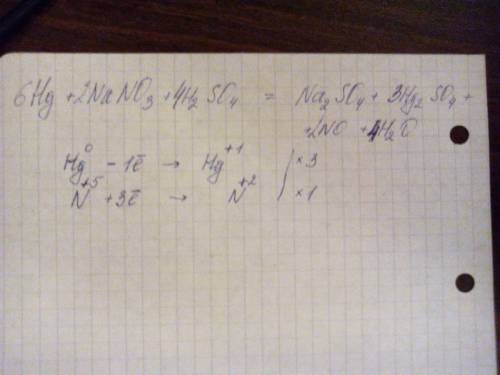 6Hg + 2NaNO₃ + 4H₂SO₄ = Na₂SO₄ + 3Hg₂SO₄ +
+2NO + 4H₂O
Hg⁰ - 1ē → Hg⁺¹ | ×3
N⁺⁵ + 3ē → N⁺² | ×1